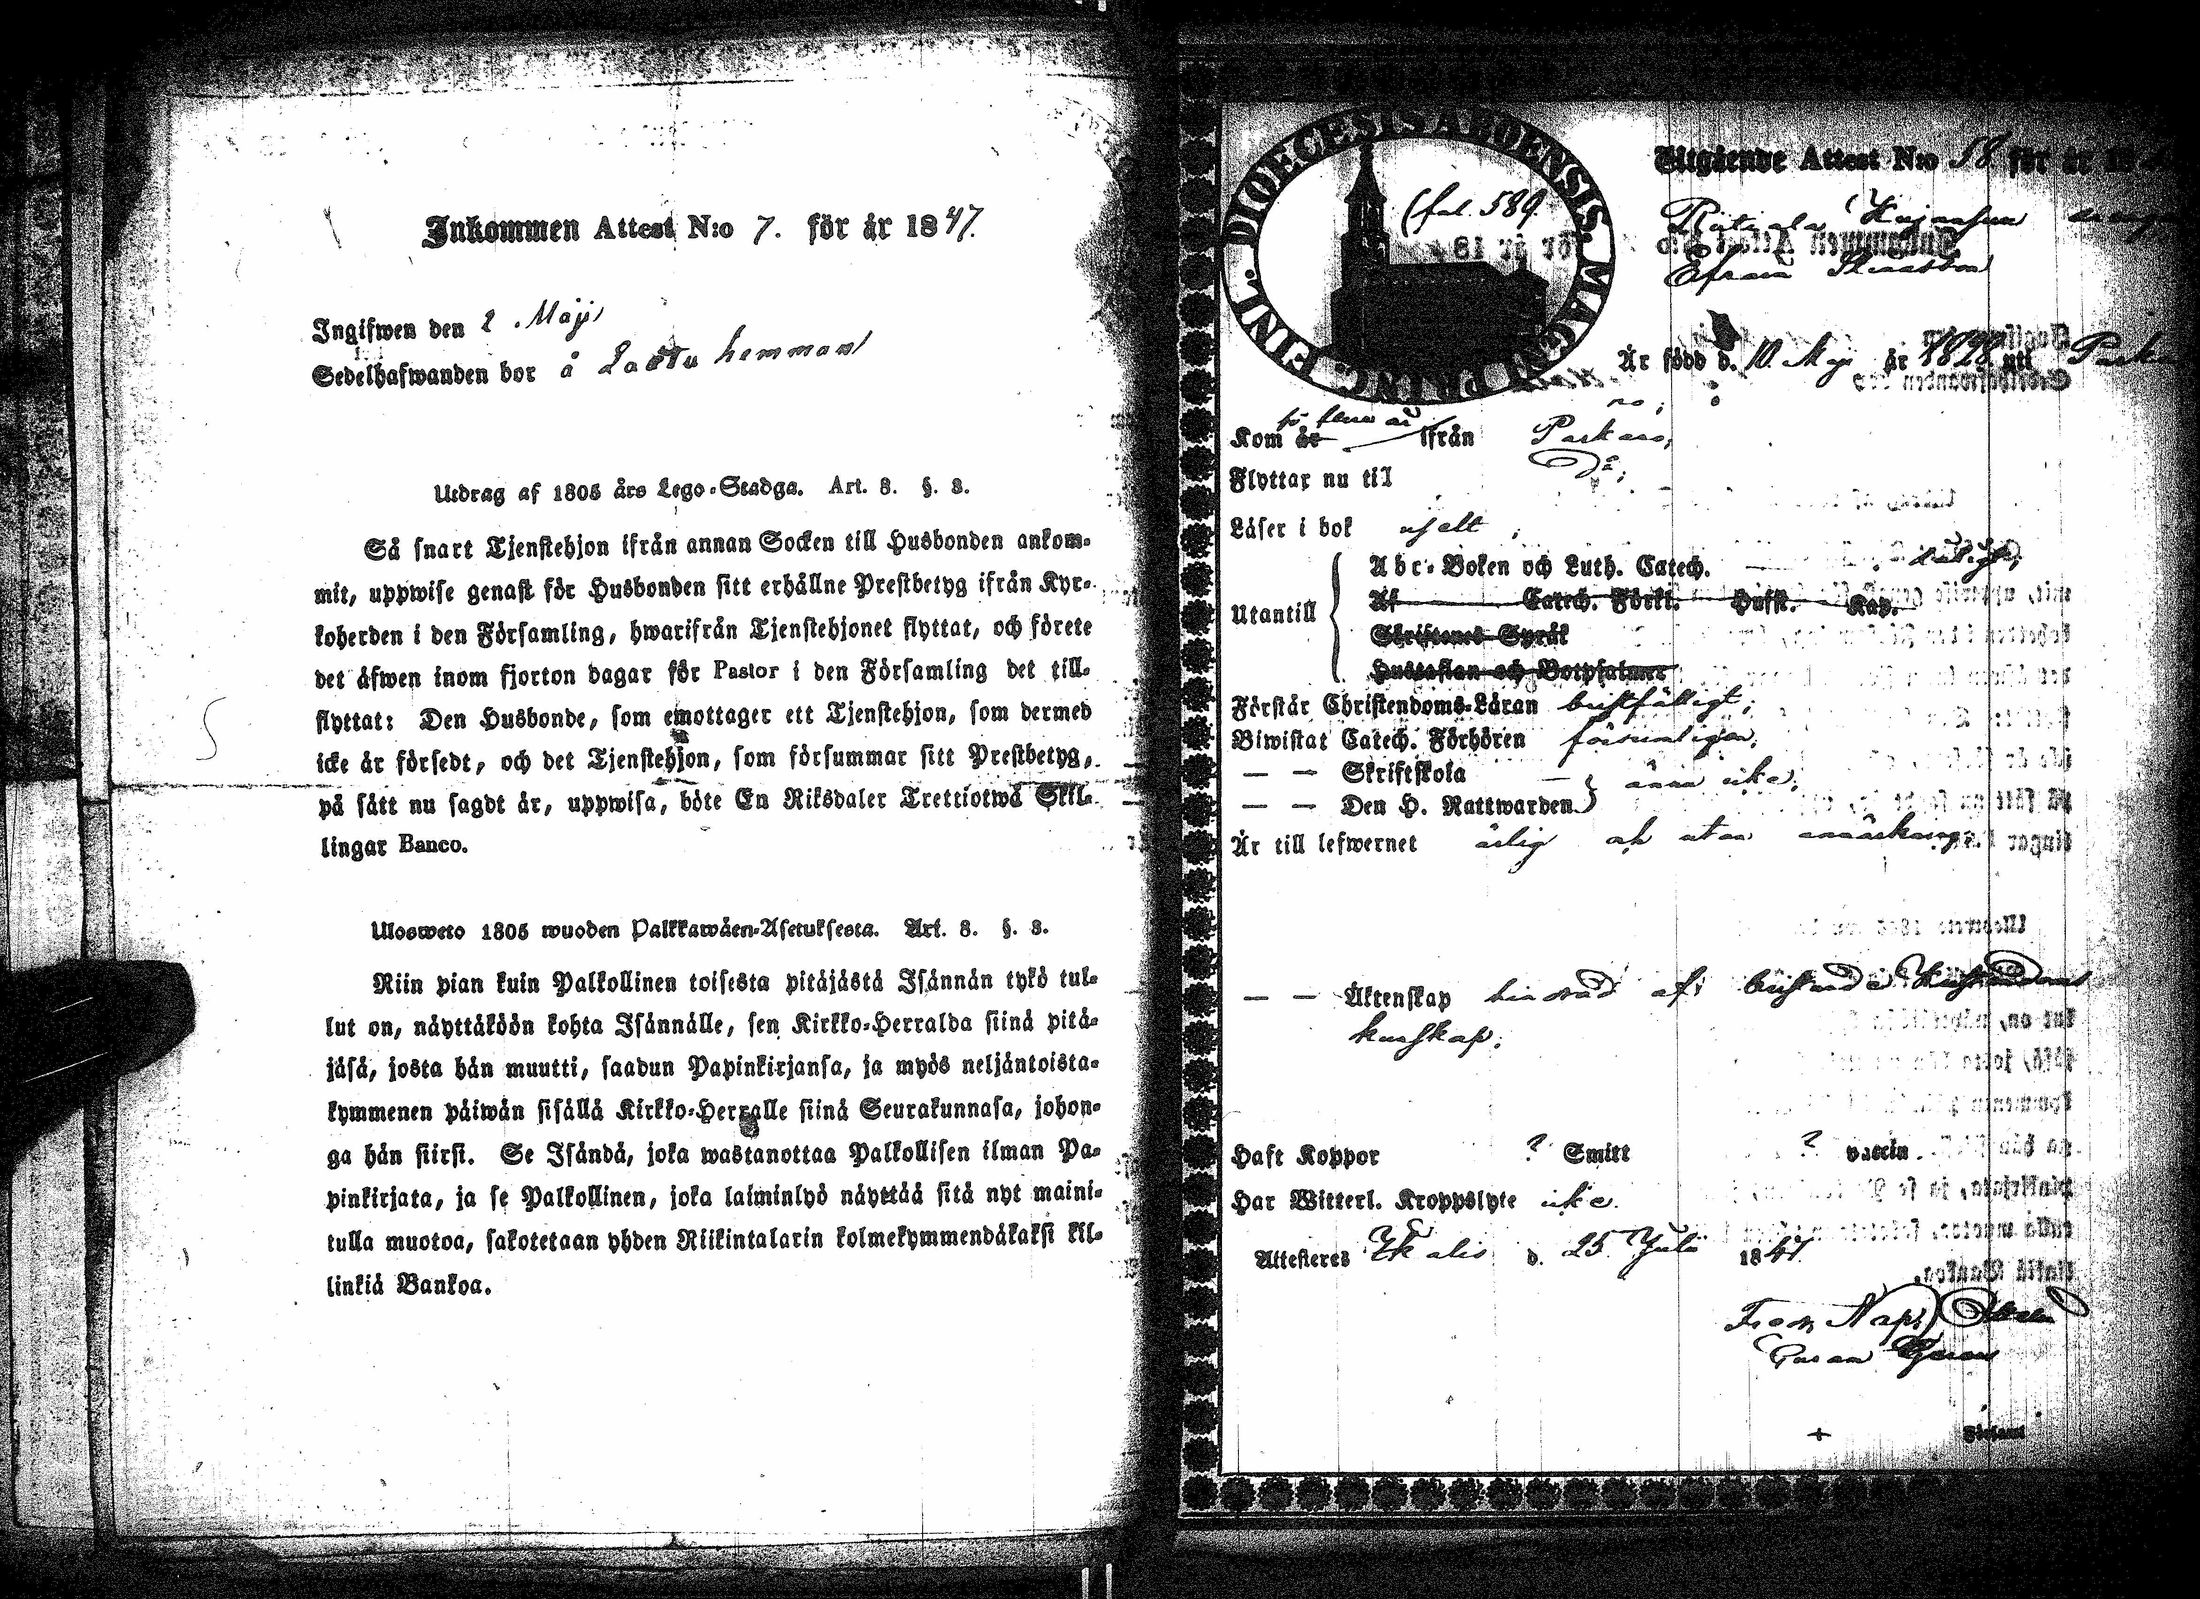 Inkommen Attest N:o 7. för år 1847.
Ingifwen den 2 . Maji
Sedelhafwanden bor å Lastu hemman
Utdrag af 1805 års Lego-Stadga. Art. 8. §. 3.
Så snart Tjenstehjon ifrån annan Socken till Husbonden ankom-
mit, uppwise genast för Husbonden sitt erhållne Prestbetyg ifrån Kyr-
koherden i den Församling, hwarifrån Tjenstehjonet flyttat, och förete
det äfwen inom fjorton dagar för Pastor i den Församling det till-
flyttat: Den Husbonde, som emottager ett Tjenstehjon, som dermed
icke är försedt, och det Tjenstehjon, som försummar sitt Prestbetyg,
på sätt nu sagdt är, uppwisa, böte En Riksdaler Trettiotwå Skil-
lingar Banco.
Ulosweto 1805 wuoden Palkkawäen-Asetuksesta. Art. 8. §. 3.
Niin pian kuin Palkollinen toisesta pitäjästä Isännän tykö tul-
lut on, näyttäköön kohta Isännälle, sen Kirkko-Herralda siinä pitä-
jäsä, josta hän muutti, saadun Papinkirjansa, ja myös neljäntoista-
kymmenen päiwän sisällä Kirkko-Herralle siinä Seurakunnasa, johon-
ga hän siirsi. Se Isändä, joka wastanottaa Palkollisen ilman Pa-
pinkirjata, ja se Palkollinen, joka laiminlyö näyttää sitä nyt maini-
tulla muotoa, sakotetaan yhden Riikintalarin kolmekymmendäkaksi kil-
linkiä Bankoa.
DIOECESIS ABOENSIS. MAGNI PRINC. FINL.
(fol. 589.
Utgående Attest N:o 58 för år 18
Efraim
Är född d. 10. Maji år 1828 uti
Kom år för flera år ifrån Parkano,
Flyttar nu till Dº;
Läser i bok
Utantill
Abc-Boken och Luth. Catech.
Af Catech. Förkl. Hufst. Kap.
Skriftenes Språk
Hustaflan och Botpsalmer
Förstår Christendoms-Läran bristfälligt;
Biwistat Catech. Förhören
— — Skriftskola
— — Den H. Nattwarden ännu icke.
Är till lefwernet ärlig och utan anmärkning
— — Äktenskap hindrad af: bristande Christendoms
kunskap.
Haft Koppor ? Smitt ? vaccin.
Har Witterl. Kroppslyte icke.
Attesteras Ikalis d. 25 Julii 1841.